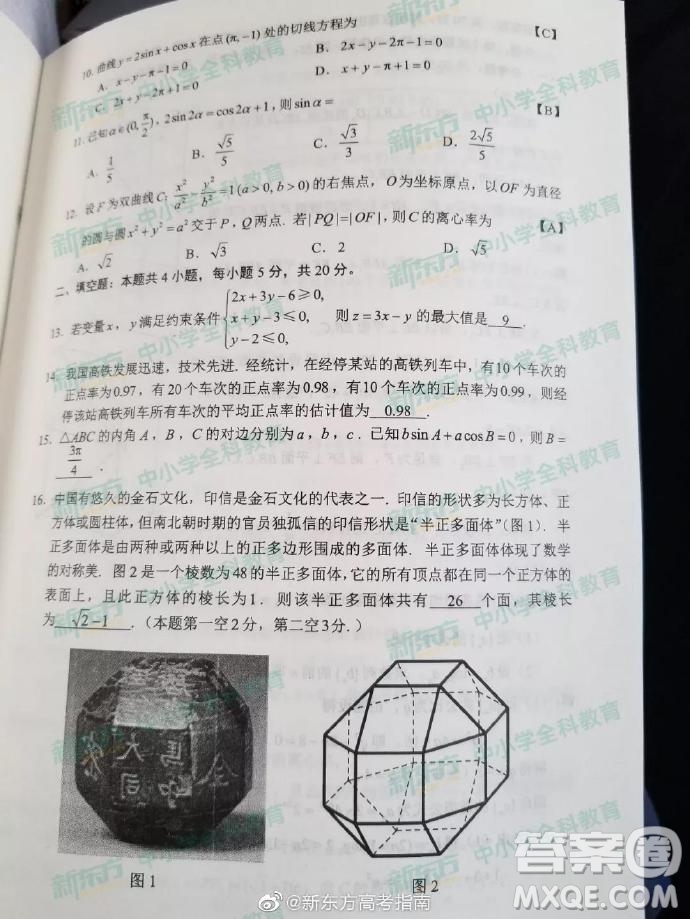 10. 曲线y=2sinx+cosx在点(π,-1)处的切线方程为 【C】
A. x-y-π-1=0 B. 2x-y-2π-1=0
C. 2x+y-2π+1=0 D. x+y-π+1=0
11. 已知α∈(0,π/2), 2sin2α=cos2α+1, 则sinα= 【B】
A. 1/5 B. √5/5 C. √3/3 D. 2√5/5
12. 设F为双曲线C: x²/a²-y²/b²=1(a>0,b>0)的右焦点, O为坐标原点, 以OF为直径
的圆与圆x²+y²=a²交于P, Q两点. 若|PQ|=|OF|, 则C的离心率为 【A】
A. √2 B. √3 C. 2 D. √5
二、填空题: 本题共4小题, 每小题5分, 共20分。
13. 若变量x, y满足约束条件{2x+3y-6≥0, x+y-3≤0, y-2≤0, 则z=3x-y的最大值是 9 .
14. 我国高铁发展迅速, 技术先进. 经统计, 在经停某站的高铁列车中, 有10个车次的
正点率为0.97, 有20个车次的正点率为0.98, 有10个车次的正点率为0.99, 则经
停该站高铁列车所有车次的平均正点率的估计值为 0.98 .
15. △ABC的内角A, B, C的对边分别为a, b, c. 已知bsinA+acosB=0, 则B=
3π/4 .
16. 中国有悠久的金石文化, 印信是金石文化的代表之一. 印信的形状多为长方体、正
方体或圆柱体, 但南北朝时期的官员独孤信的印信形状是“半正多面体”(图1). 半
正多面体是由两种或两种以上的正多边形围成的多面体. 半正多面体体现了数学
的对称美. 图2是一个棱数为48的半正多面体, 它的所有顶点都在同一个正方体的
表面上, 且此正方体的棱长为1. 则该半正多面体共有 26 个面, 其棱长
为 √2-1 .（本题第一空2分, 第二空3分.）
图1 图2
新东方 中小学全科教育
@新东方高考指南
答案圈
MXQE.COM